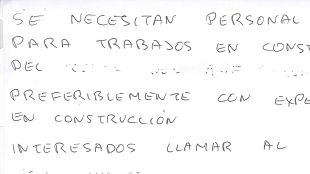 SE NECESITAN PERSONAL
PARA TRABAJOS EN CONST
DEL
PREFERIBLEMENTE CON EXPE
EN CONSTRUCCIÓN
INTERESADOS LLAMAR AL